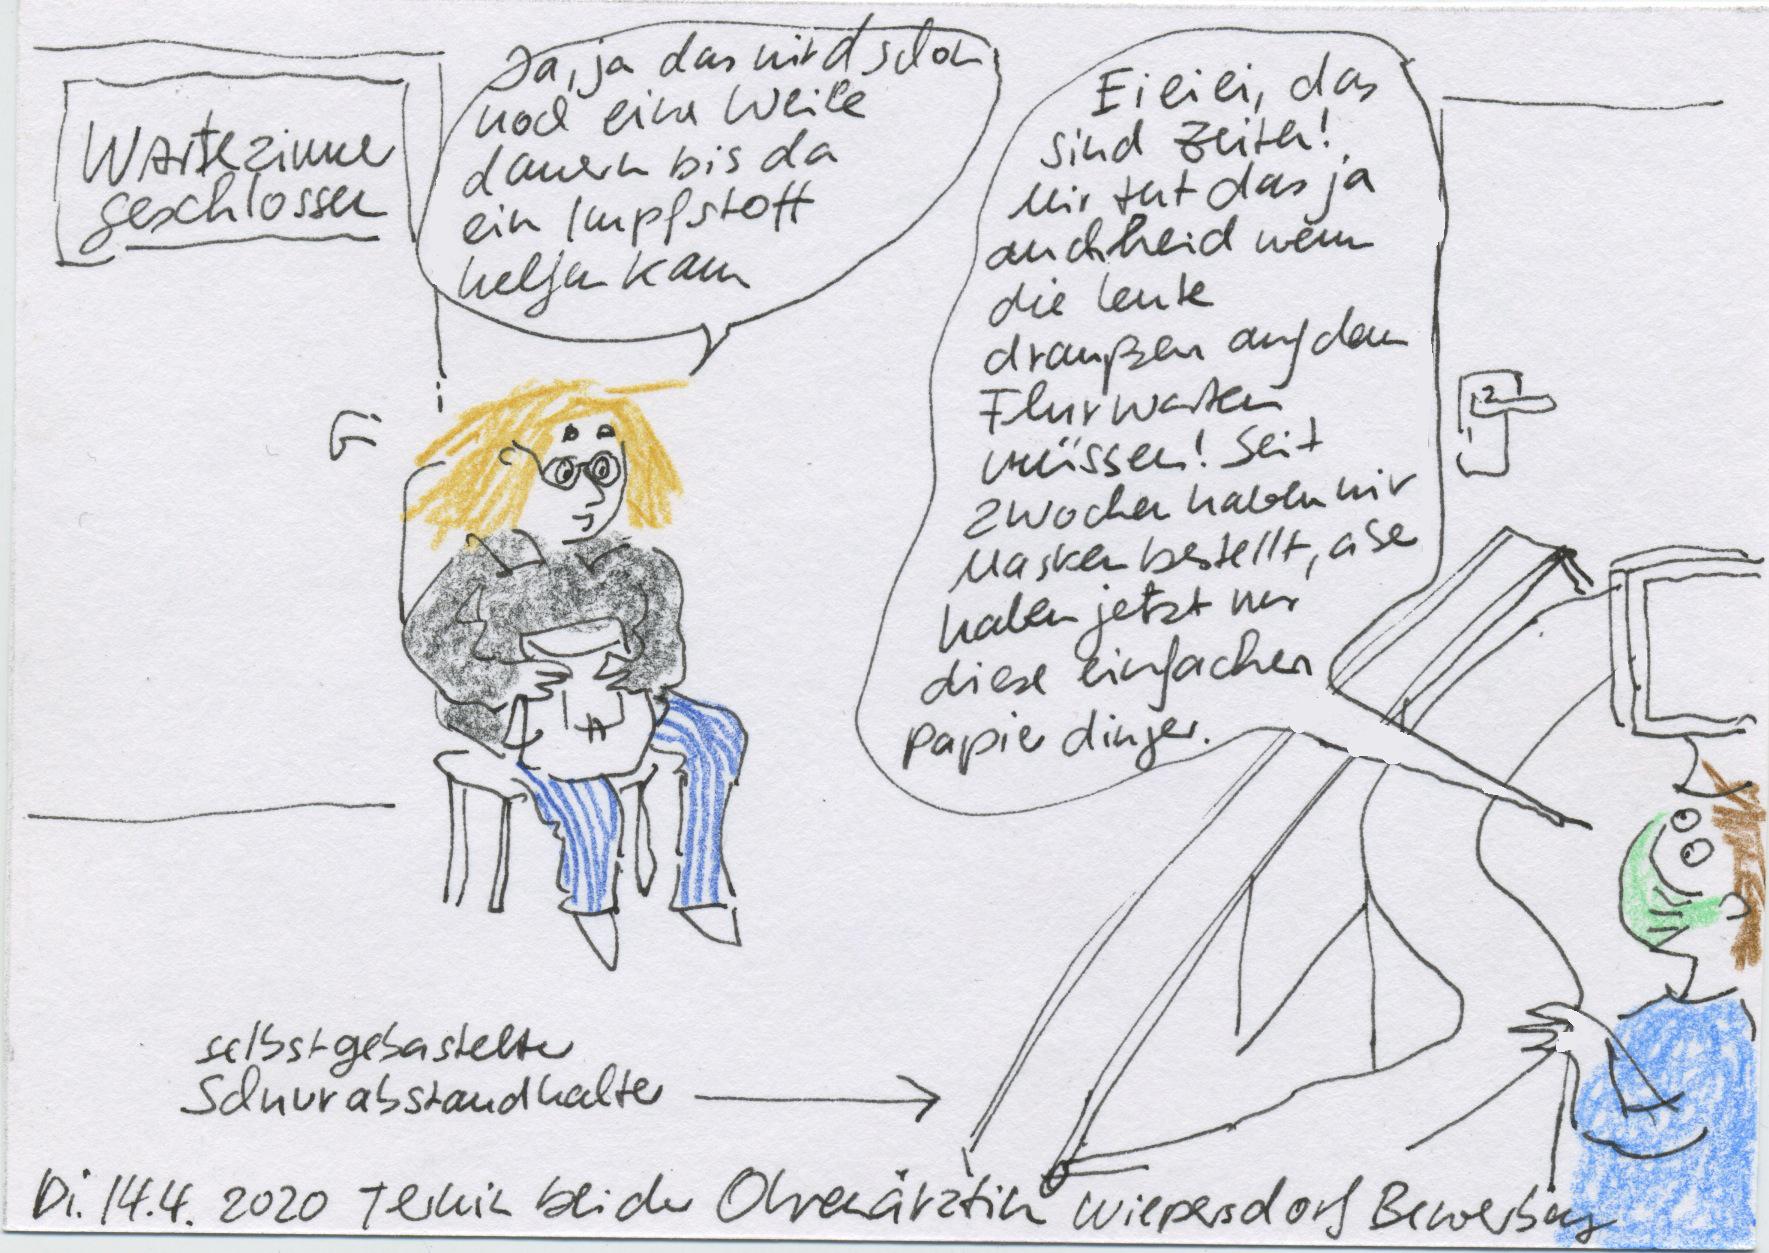 Wartezimmer
geschlossen
Ja, ja das wird schon
noch eine Weile
dauern bis da
ein Impfstoff
helfen kann
Eieiei, das
sind Zeiten!
Mir tut das ja
auch leid wenn
die Leute
draußen auf dem
Flur warten
müssen! Seit
2 Wochen haben wir
Masken bestellt, aber
haben jetzt nur
diese einfachen
papier dinger.
selbstgebastelter
Schnurabstandhalter
Di. 14.4. 2020 Termin bei der Ohrenärztin Wiepersdorf Bewerbung